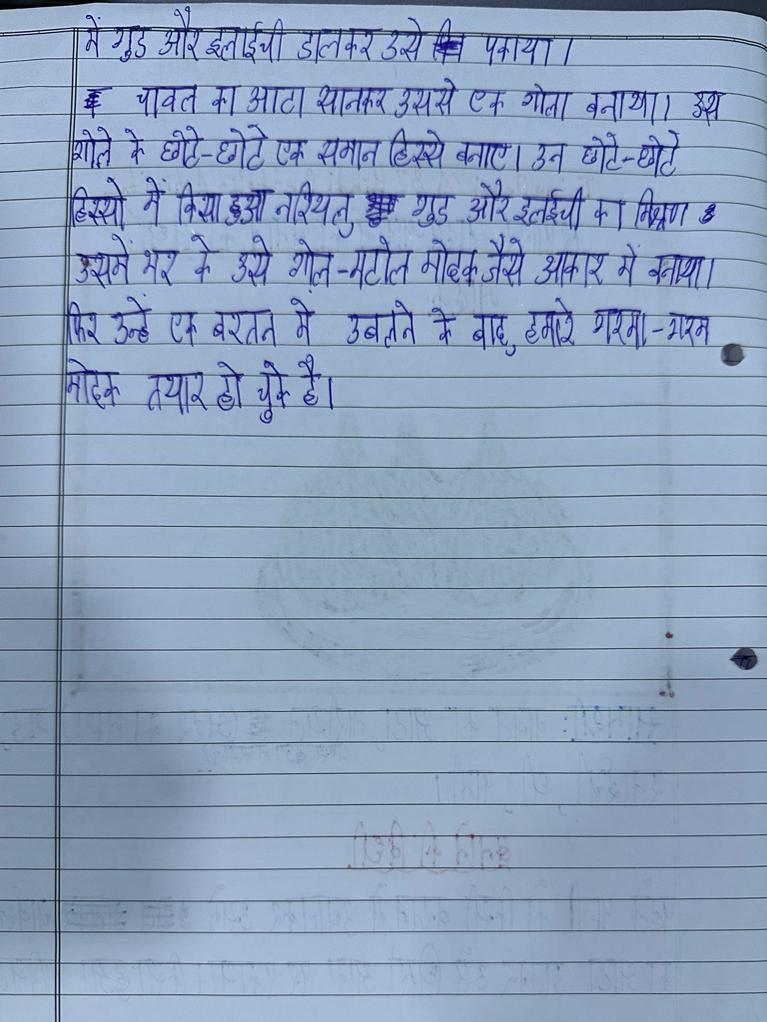 में गुड और इलाईची डालकर उसे पकाया।
चावल का आटा सानकर उससे एक गोला बनाया। उस
गोले के छोटे-छोटे एक समान हिस्से बनाए। उन छोटे-छोटे
हिस्सो में किसा हुआ नारियल, गुड और इलाईची का मिश्रण
उसमें भर के उसे गोल-मटोल मोदक जैसे आकार में बनाया।
फिर उन्हें एक बरतन में उबालने के बाद, हमारे गरमा-गरम
मोदक तयार हो चुके है।